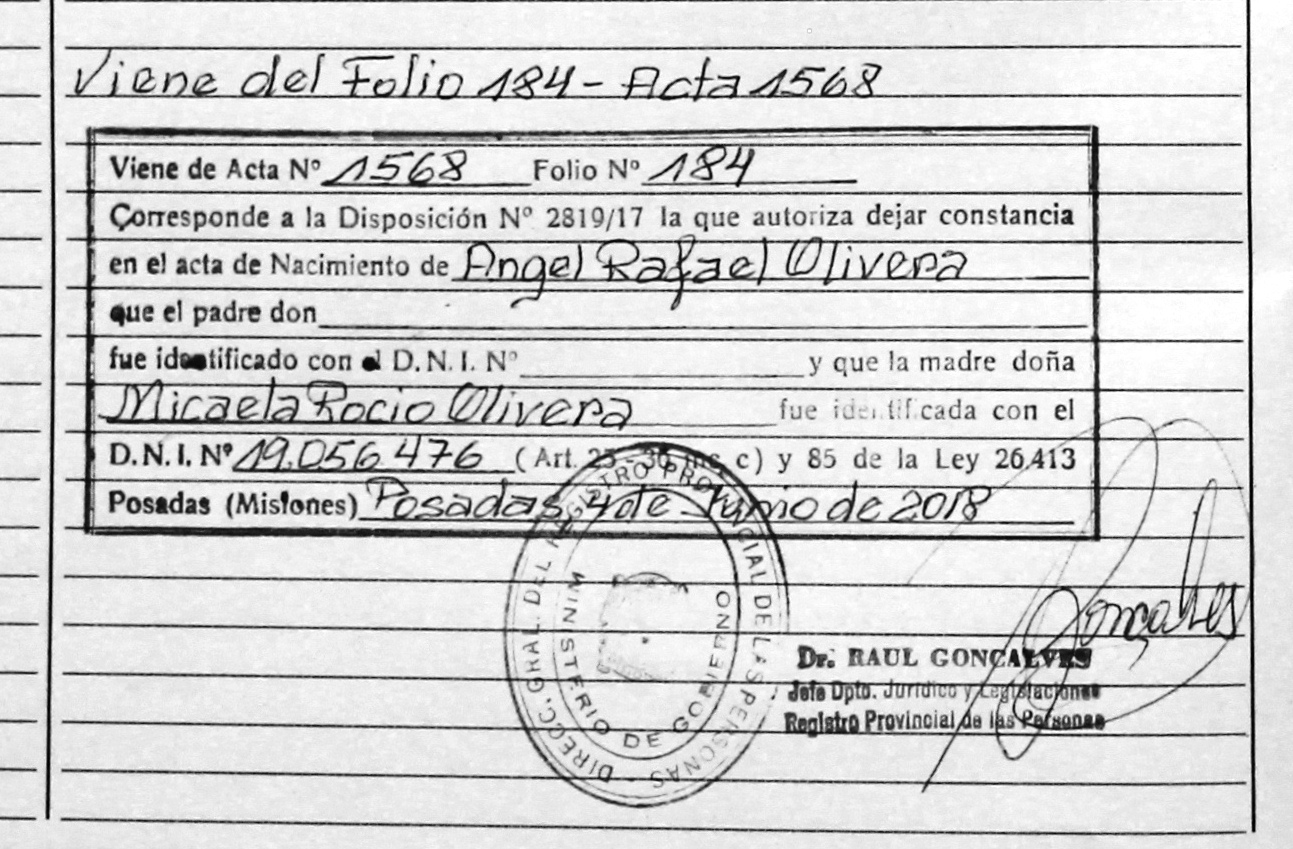 Viene del Folio 184 - Acta 1568
Viene de Acta Nº 1568 Folio Nº 184
Corresponde a la Disposición Nº 2819/17 la que autoriza dejar constancia
en el acta de Nacimiento de Angel Rafael Olivera
que el padre don
fue identificado con el D.N.I. Nº y que la madre doña
Micaela Rocio Olivera fue identificada con el
D.N.I. Nº 19.056.476 (Art. 25 - 36 inc. c) y 85 de la Ley 26.413
Posadas (Misiones) Posadas 4 de Junio de 2018
DIREC. GRAL. DEL REGISTRO PROVINCIAL DE LAS PERSONAS
MINISTERIO DE GOBIERNO
Goncalves
Dr. RAUL GONCALVES
Jefe Dpto. Jurídico y Legislaciones
Registro Provincial de las Personas